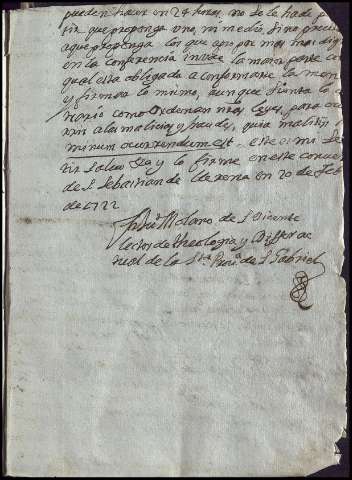 pueden hacer en 24 horas, no se le ha de
tir que proponga uno, ni medio, sino
a que proponga los que
en la conferencia la maior parte
qual esta obligada a conformarse la
y firmar lo mismo, aunque sienta lo
trario como ordenan nras leyes, para
rrir a las malicias, y fraudes, quia malitiis
minum occurrendum est. este es mi
tir salvo &a y lo firme en este conve
de S. Sebastian de Llerena en 20 de Feb
de 1722
Molano de S. Vicente
Lector de theologia, y Diffor ac
tual de la Sta. Prova. de S. Gabriel